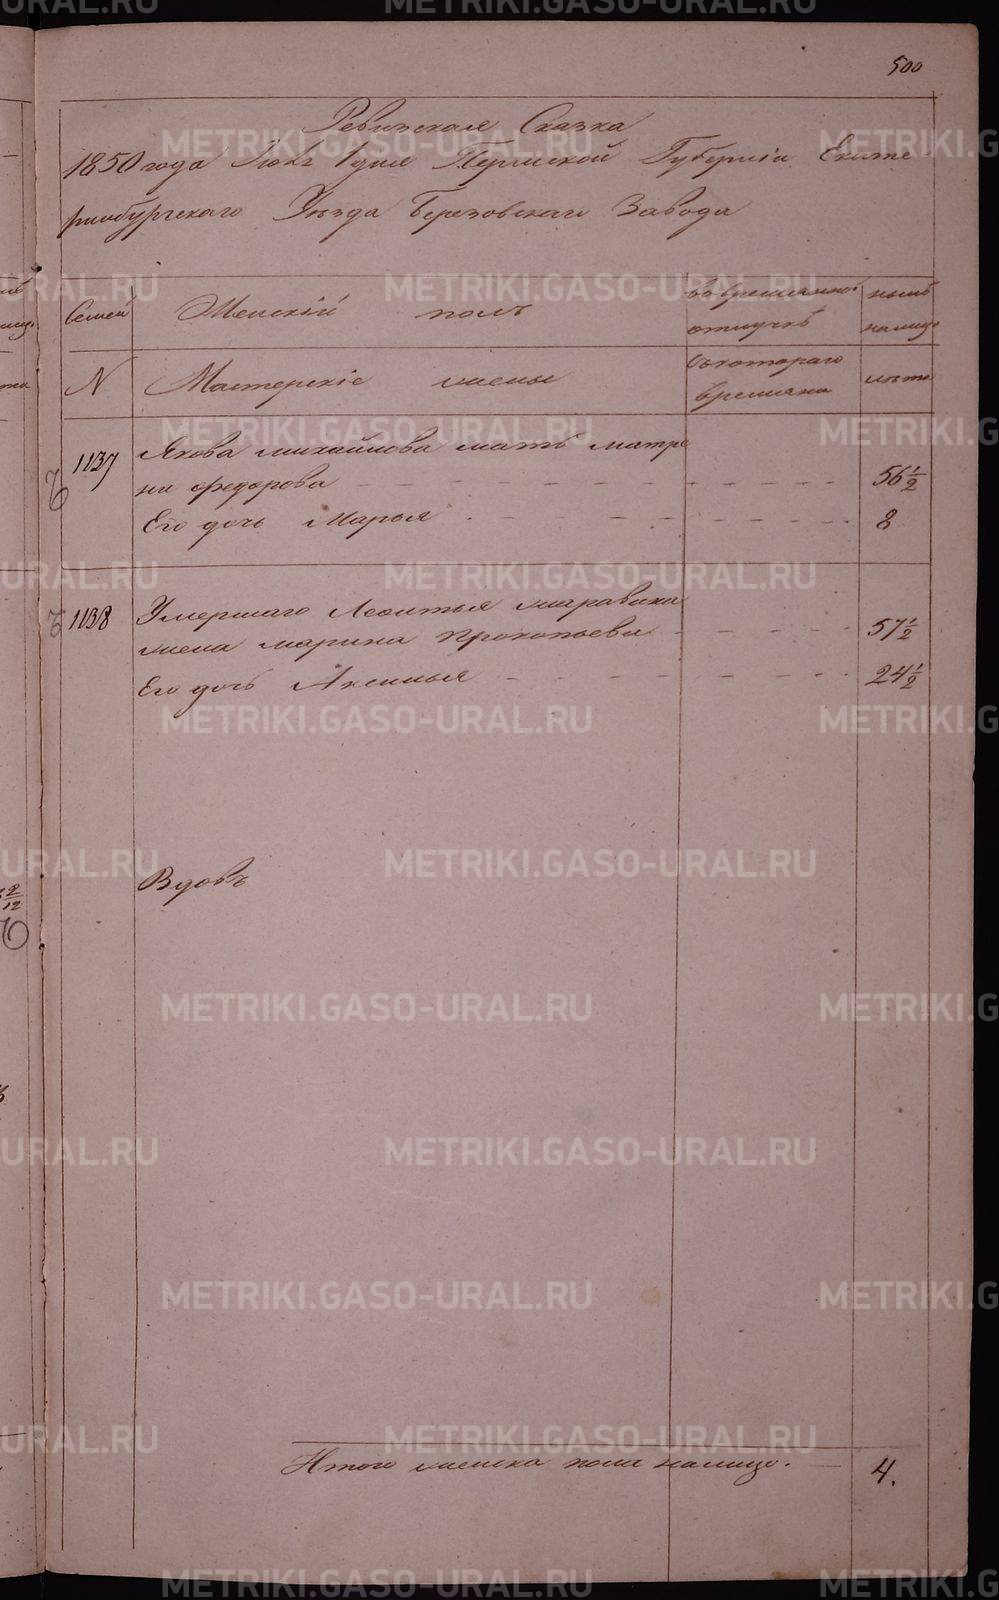 500
Ревизская Сказка
1850 года Июнь 1 дня Пермской Губерніи Екате
ринбургскаго Уезда Березовскаго Завода
Семей Женскій полъ въ временной ныне
отлучкѣ налицо
N Мастерскіе жены съ котораго лета
времяни
1137 Якова михайлова мать матре
на федорова 56 1/2
Его дочь Марья 8
1138 Умершаго Леонтья
жена марина Прокопьева 57 1/2
Его дочь Аксинья 24 1/2
Вдовъ
Итого женска пола налицо. 4.
METRIKI.GASO-URAL.RU